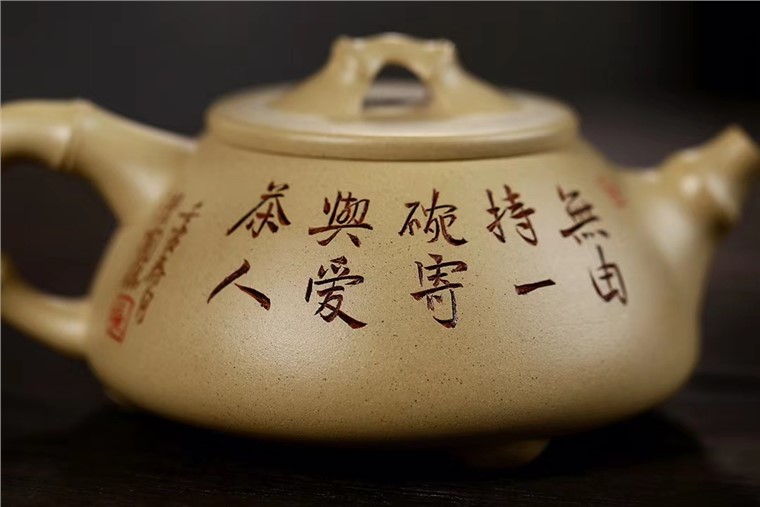 無由
持一
碗寄
與爱
茶人